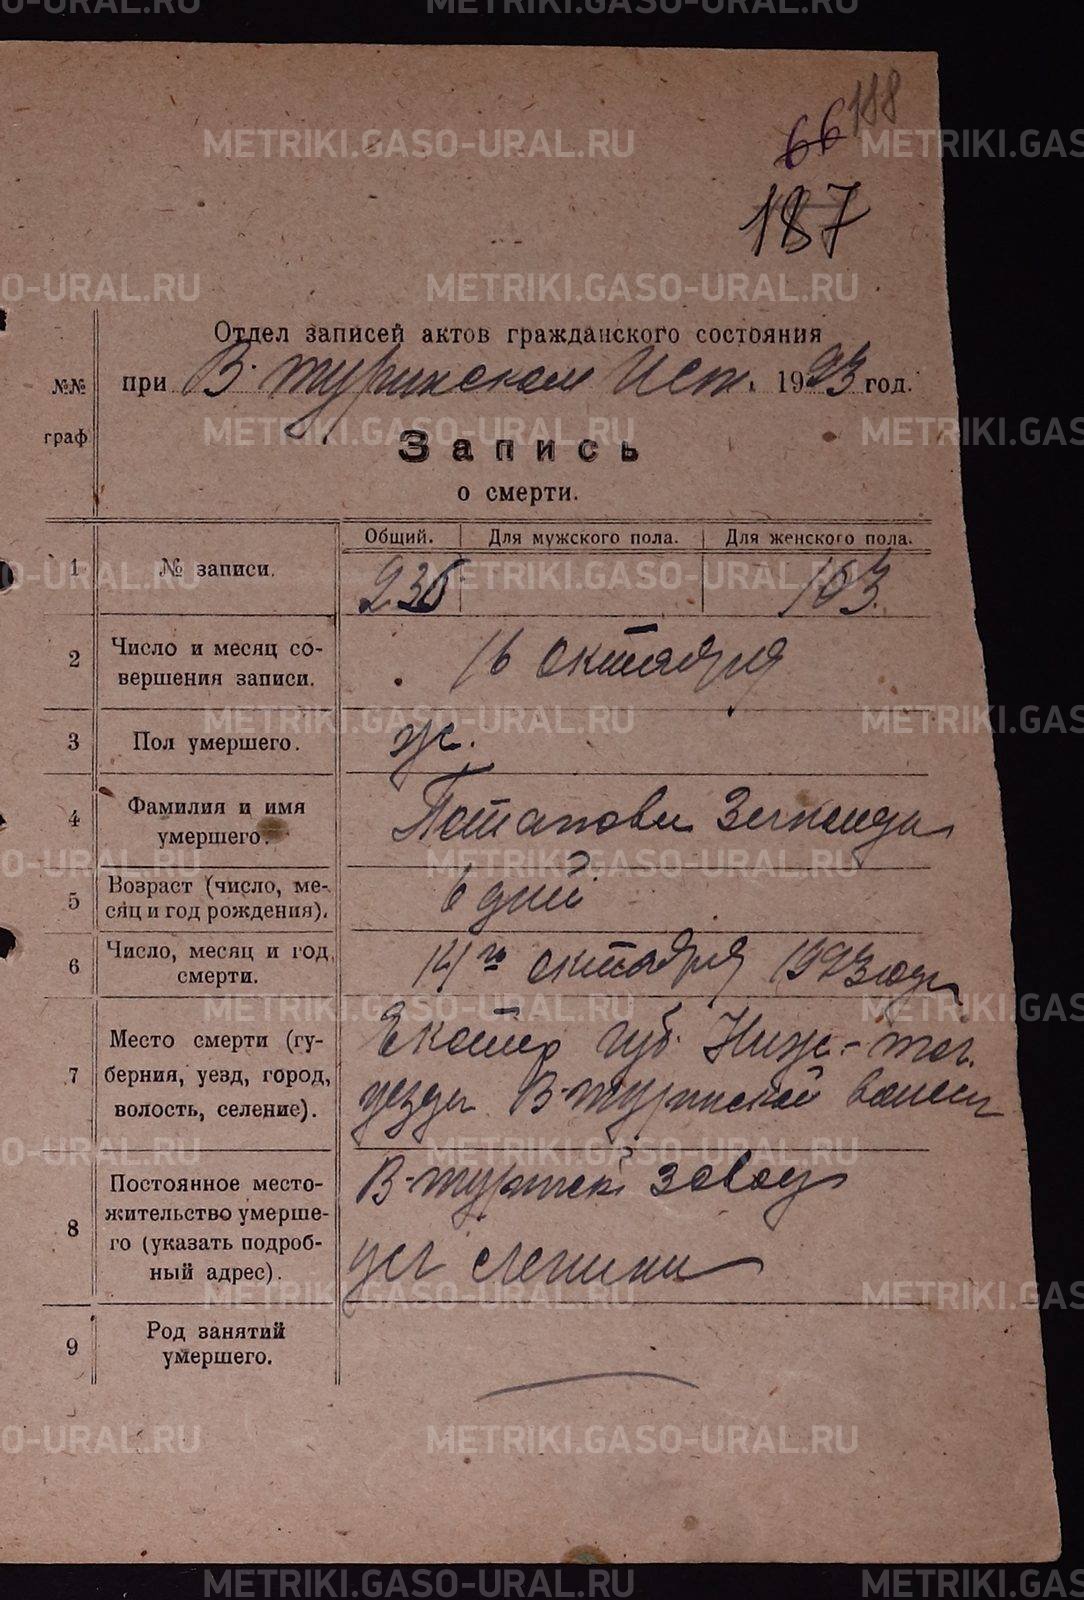 66 188
187
Отдел записей актов гражданского состояния
№№ граф
при В. Туринском Исп. 1923 год.
Запись
о смерти.
Общий. Для мужского пола. Для женского пола.
1 № записи. 236 103.
2 Число и месяц со-
вершения записи. 16 октября
3 Пол умершего. ж.
4 Фамилия и имя
умершего. Потапова Зинаида
5 Возраст (число, ме-
сяц и год рождения). 6 дней
6 Число, месяц и год
смерти. 14го октября 1923 года
7 Место смерти (гу- Екатер губ. Ниж-таг.
берния, уезд, город, уезда В-Туринской волости
волость, селение).
8 Постоянное место- В-Туринск завод
жительство умерше-
го (указать подроб- ул Ленина
ный адрес).
9 Род занятий
умершего.
METRIKI.GASO-URAL.RU